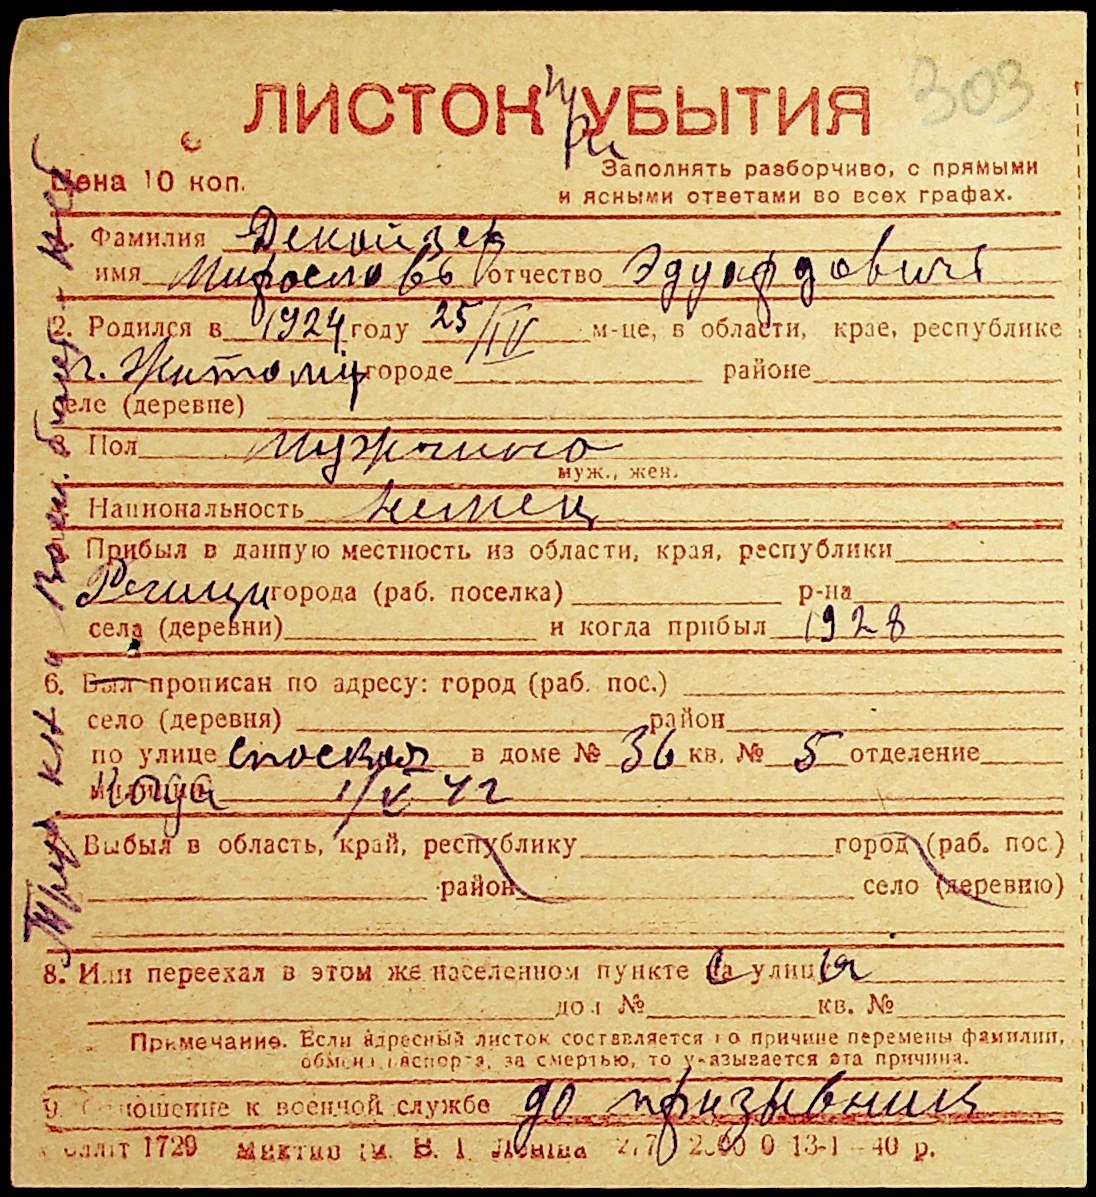 303
ЛИСТОК при УБЫТИЯ
Цена 10 коп.
Заполнять разборчиво, с прямыми
и ясными ответами во всех графах.
Фамилия
имя Мирославъ отчество Эдуардович
2. Родился в 1924 году 25/IV м-це, в области, крае, республике
г. Житомір городе районе
селе (деревне)
Пол мужчина
муж., жен.
Национальность немец
Прибыл в данную местность из области, края, республики
Речици города (раб. поселка) р-на
села (деревни) и когда прибыл 1928
6. Был прописан по адресу: город (раб. пос.)
село (деревня) район
по улице Споская в доме № 36 кв. № 5 отделение
милиции Когда 1/V 41
Выбыл в область, край, республику город (раб. пос.)
район село (деревню)
8. Или переехал в этом же населенном пункте на улицу
дом № кв. №
Примечание. Если адресный листок составляется по причине перемены фамилии,
обмена паспорта, за смертью, то указывается эта причина.
9. Отношение к военной службе до призывник
1729 В. І. Леніна 13-I-40 р.